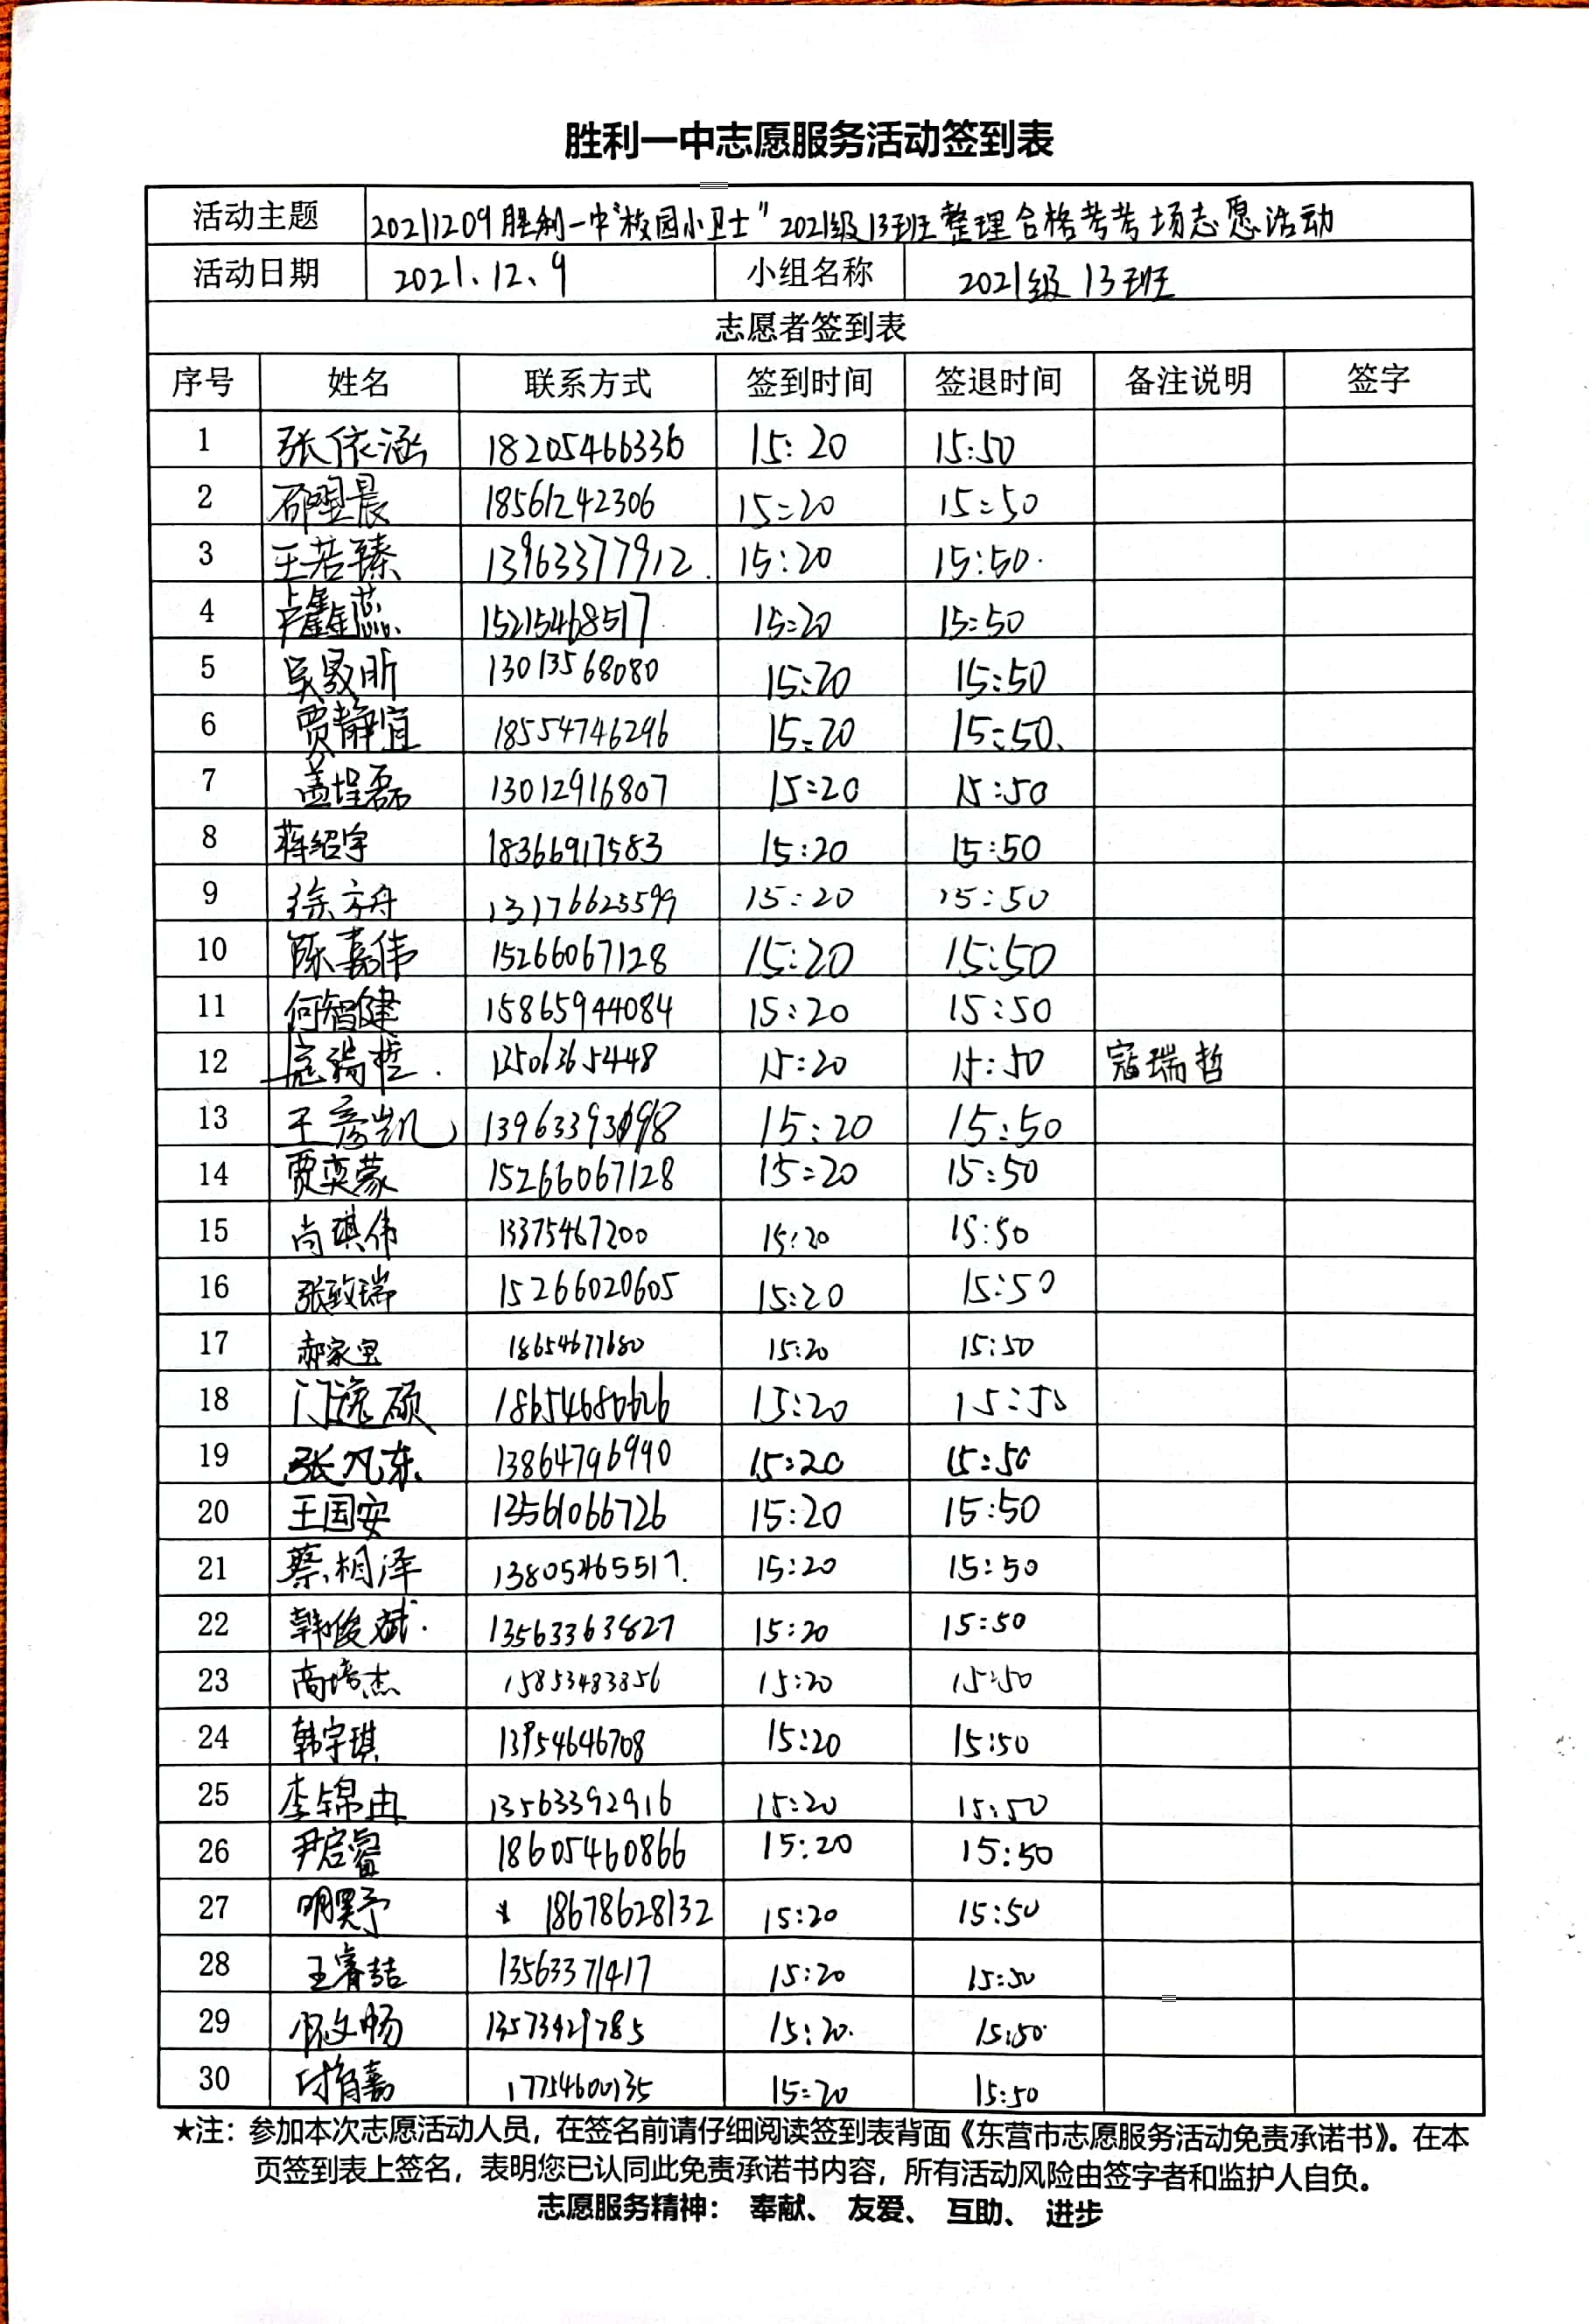 胜利一中志愿服务活动签到表
活动主题 20211209胜利一中"校园小卫士"2021级13班整理合格考考场志愿活动
活动日期 2021.12.9 小组名称 2021级13班
志愿者签到表
序号 姓名 联系方式 签到时间 签退时间 备注说明 签字
1 张依涵 18205466336 15:20 15:50
2 邵翌晨 18561242306 15:20 15:50
3 王若臻 13963377912. 15:20 15:50.
4 卢鑫蕊 15215468517 15:20 15:50
5 吴昕 13013568080 15:20 15:50
6 贾静宜 18554746296 15:20 15:50.
7 盖埕磊 13012916807 15:20 15:50
8 蒋绍宇 18366917583 15:20 15:50
9 徐方舟 13176625599 15:20 15:50
10 陈嘉伟 15266067128 15:20 15:50
11 何智健 15865944084 15:20 15:50
12 寇瑞哲. 15:20 15:50 寇瑞哲
13 王彦凯 15:20 15:50
14 贾奕蒙 15266067128 15:20 15:50
15 尚琪伟 13375467200 15:20 15:50
16 张致瑞 15266020605 15:20 15:50
17 郝家宝 18654677680 15:20 15:50
18 门逸硕 18654680626 15:20 15:50
19 张凡东. 13864796990 15:20 15:50
20 王国安 13561066726 15:20 15:50
21 蔡相泽 13805465517. 15:20 15:50
22 韩俊斌. 13563363827 15:20 15:50
23 高培杰 15853483856 15:20 15:50
24 韩宇琪 13954646708 15:20 15:50
25 李锦冉 13563392916 15:20 15:50
26 尹启睿 18605460866 15:20 15:50
27 明昊予 18678628132 15:20 15:50
28 王睿喆 13563371417 15:20 15:50
29 文畅 13573929785 15:20. 15:50.
30 付育嘉 17754600135 15:20 15:50
★注：参加本次志愿活动人员，在签名前请仔细阅读签到表背面《东营市志愿服务活动免责承诺书》。在本
页签到表上签名，表明您已认同此免责承诺书内容，所有活动风险由签字者和监护人自负。
志愿服务精神： 奉献、 友爱、 互助、 进步